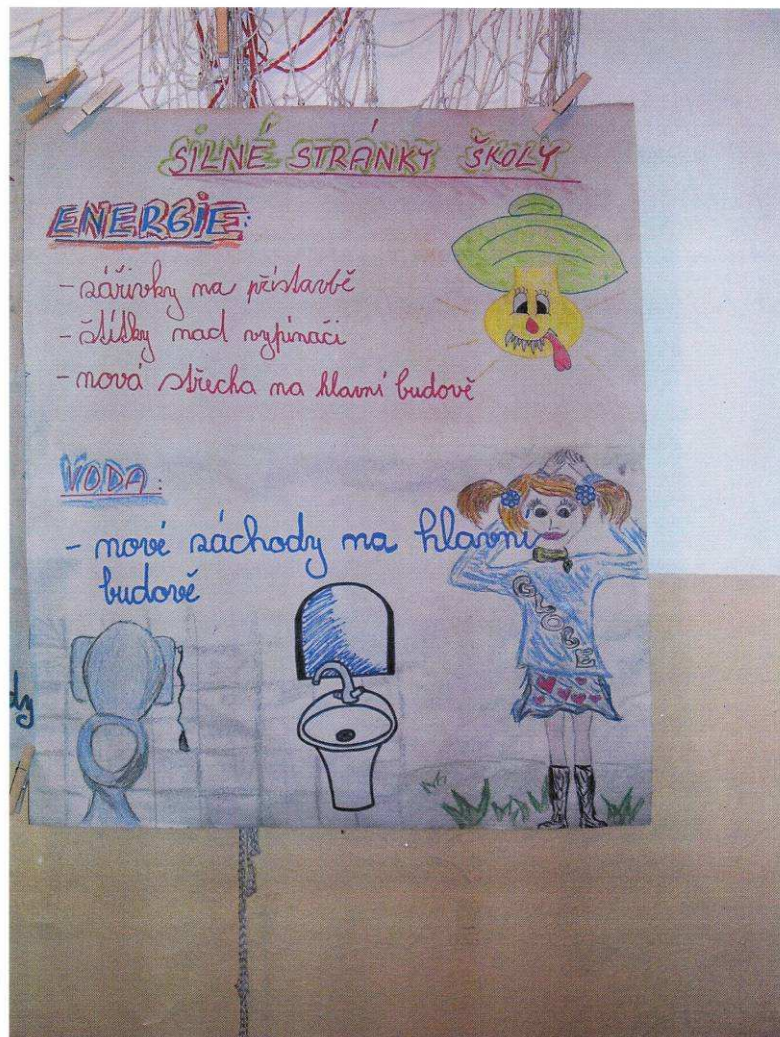 SILNÉ STRÁNKY ŠKOLY
ENERGIE:
- zářivky na přístavbě
- štítky nad vypínači
- nová střecha na hlavní budově
VODA:
- nové záchody na hlavní
budově
GLOBE
dy